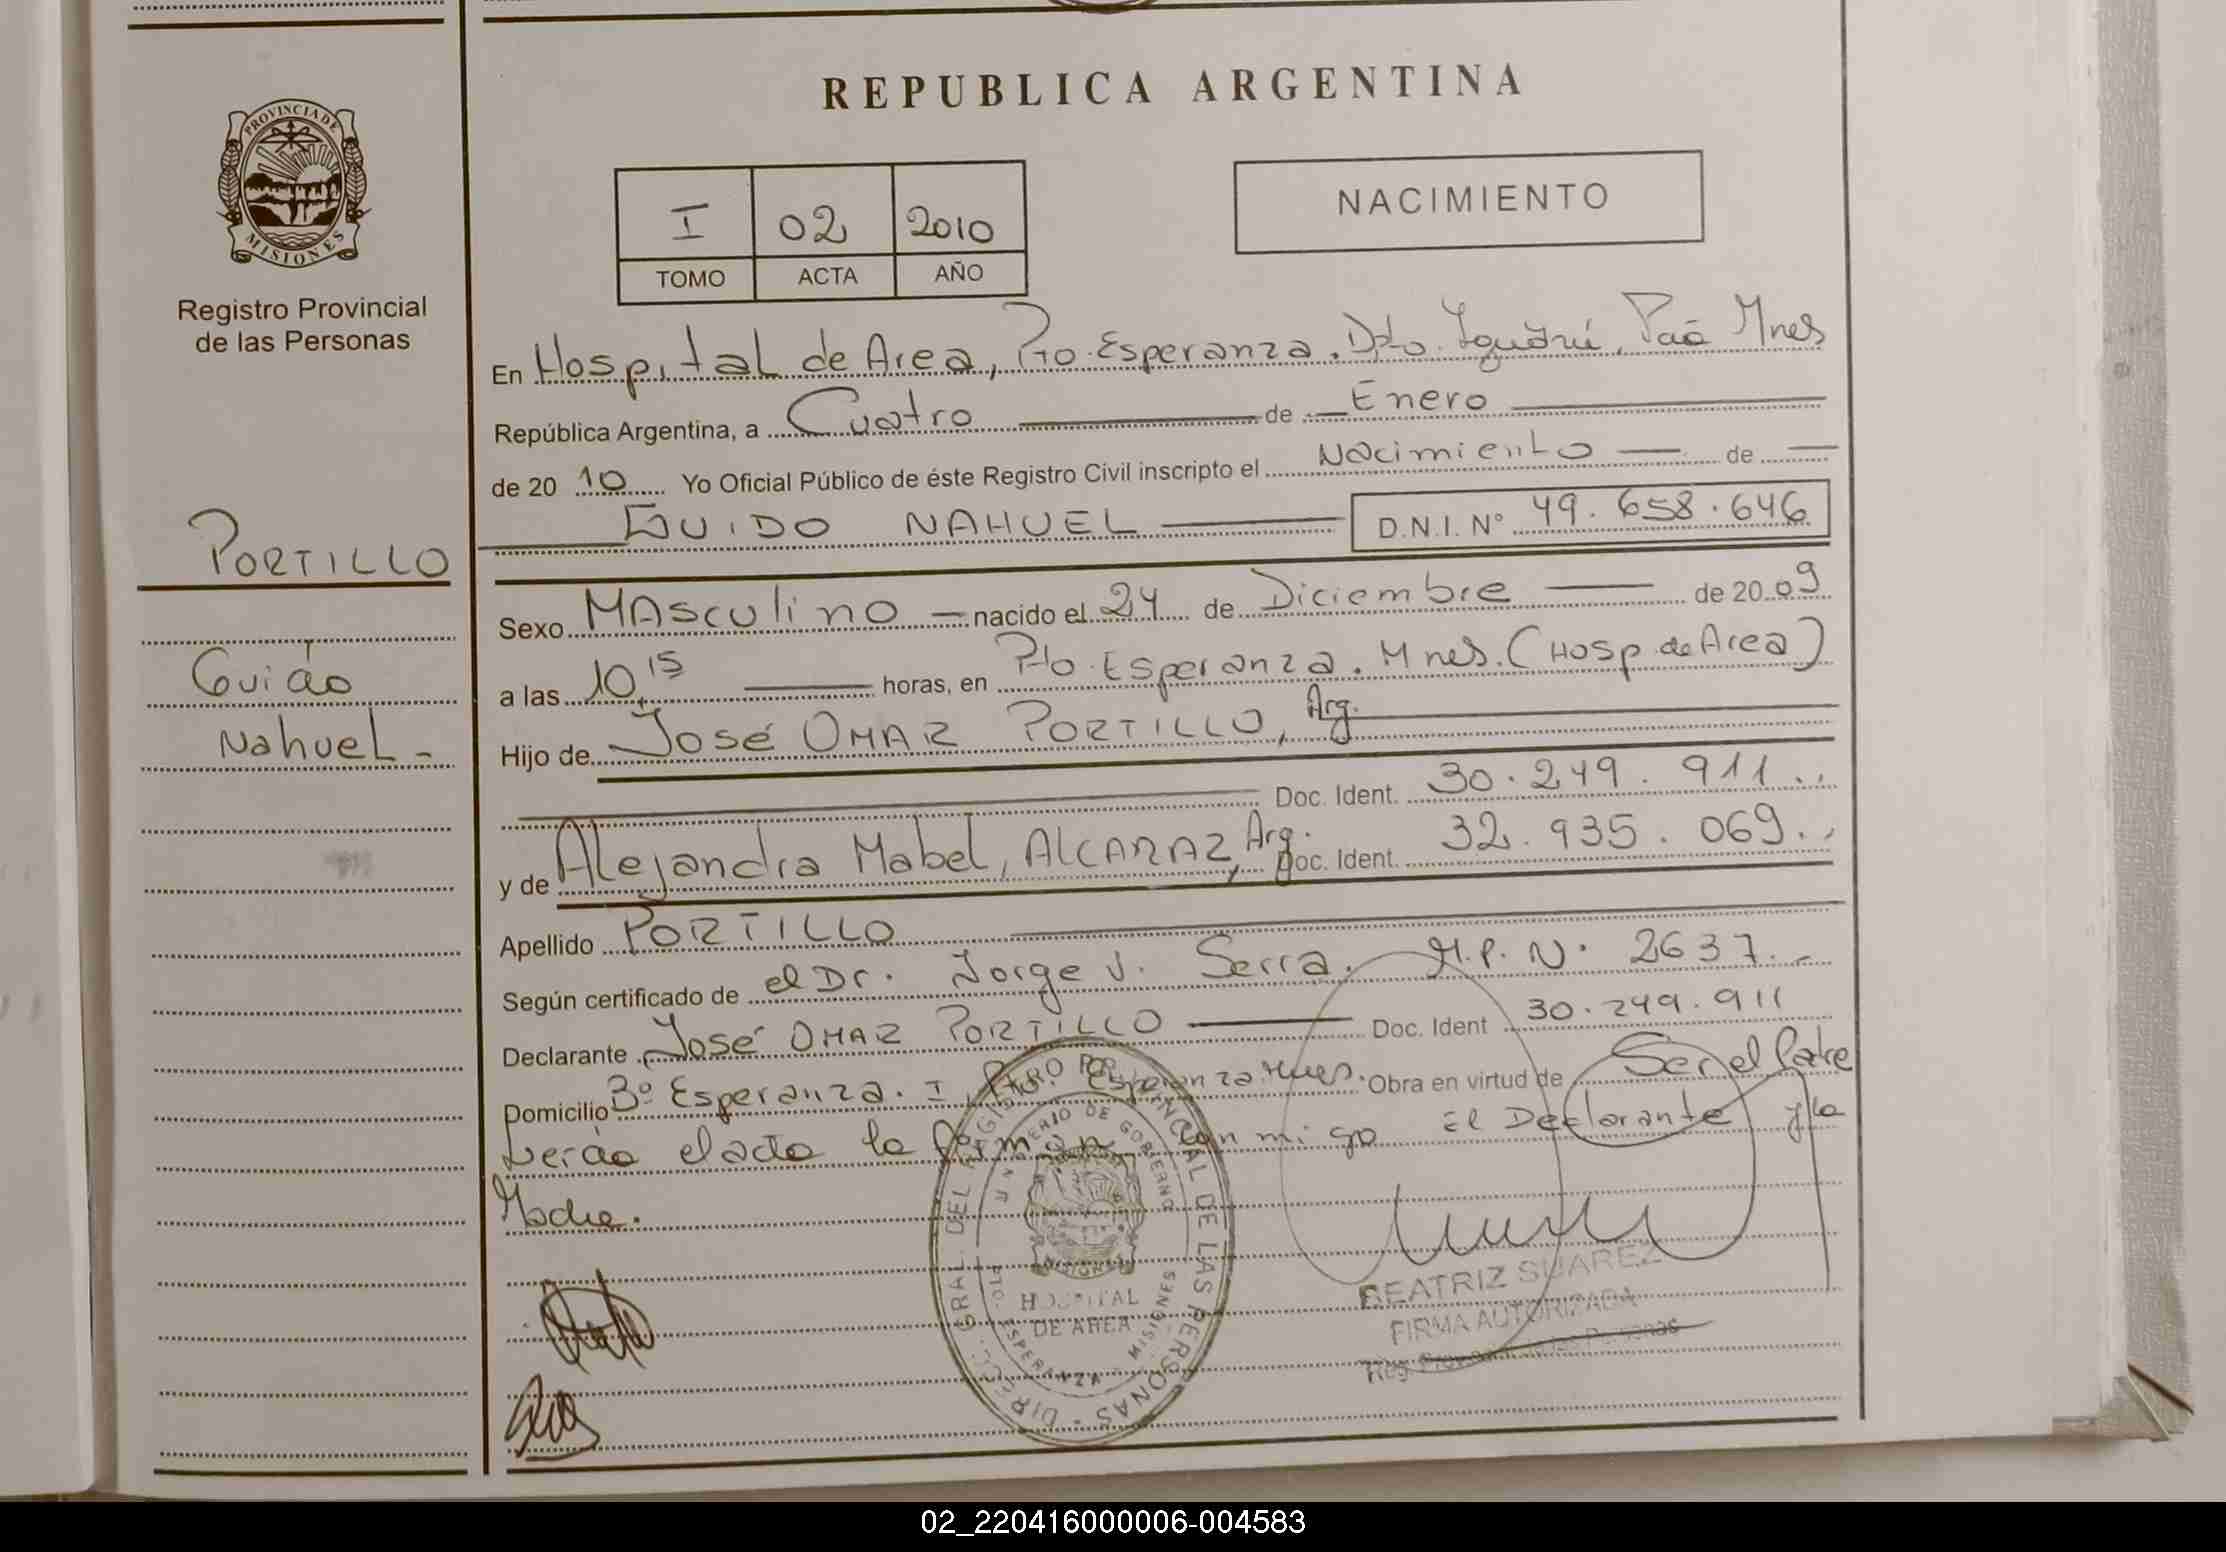 REPUBLICA ARGENTINA
PROVINCIA DE
MISIONES
Registro Provincial
de las Personas
PORTILLO
Guido
Nahuel -
I 02 2010
TOMO ACTA AÑO
NACIMIENTO
En Hospital de Area, Pto. Esperanza. Dpto. Iguazú, Pcia Mnes
República Argentina, a Cuatro de Enero
de 20 10 Yo Oficial Público de éste Registro Civil inscripto el Nacimiento de
GUIDO NAHUEL D.N.I. N° 49.658.646
Sexo Masculino nacido el 24 de Diciembre de 20 09
a las 10,15 horas, en Pto. Esperanza. Mnes. (Hosp. de Area)
Hijo de José OMAR PORTILLO, Arg.
Doc. Ident. 30.249.911..
y de Alejandra Mabel, ALCARAZ, Arg. Doc. Ident. 32.935.069..
Apellido PORTILLO
Según certificado de el Dr. Jorge J. Serra. M.P.N° 2637.-
Declarante José OMAR PORTILLO Doc. Ident 30.249.911
Domicilio Bº Esperanza. I, Pto. Esperanza Mnes. Obra en virtud de Ser el Padre
el acta la firman conmigo El Declarante y la
Madre.
DIREC. GRAL DEL REGISTRO PROVINCIAL DE LAS PERSONAS
MINISTERIO DE GOBIERNO
MISIONES
HOSPITAL
DE AREA
PTO. ESPERANZA - MISIONES
BEATRIZ SUAREZ
FIRMA AUTORIZADA
Reg. Prov. de las Personas
02_220416000006-004583